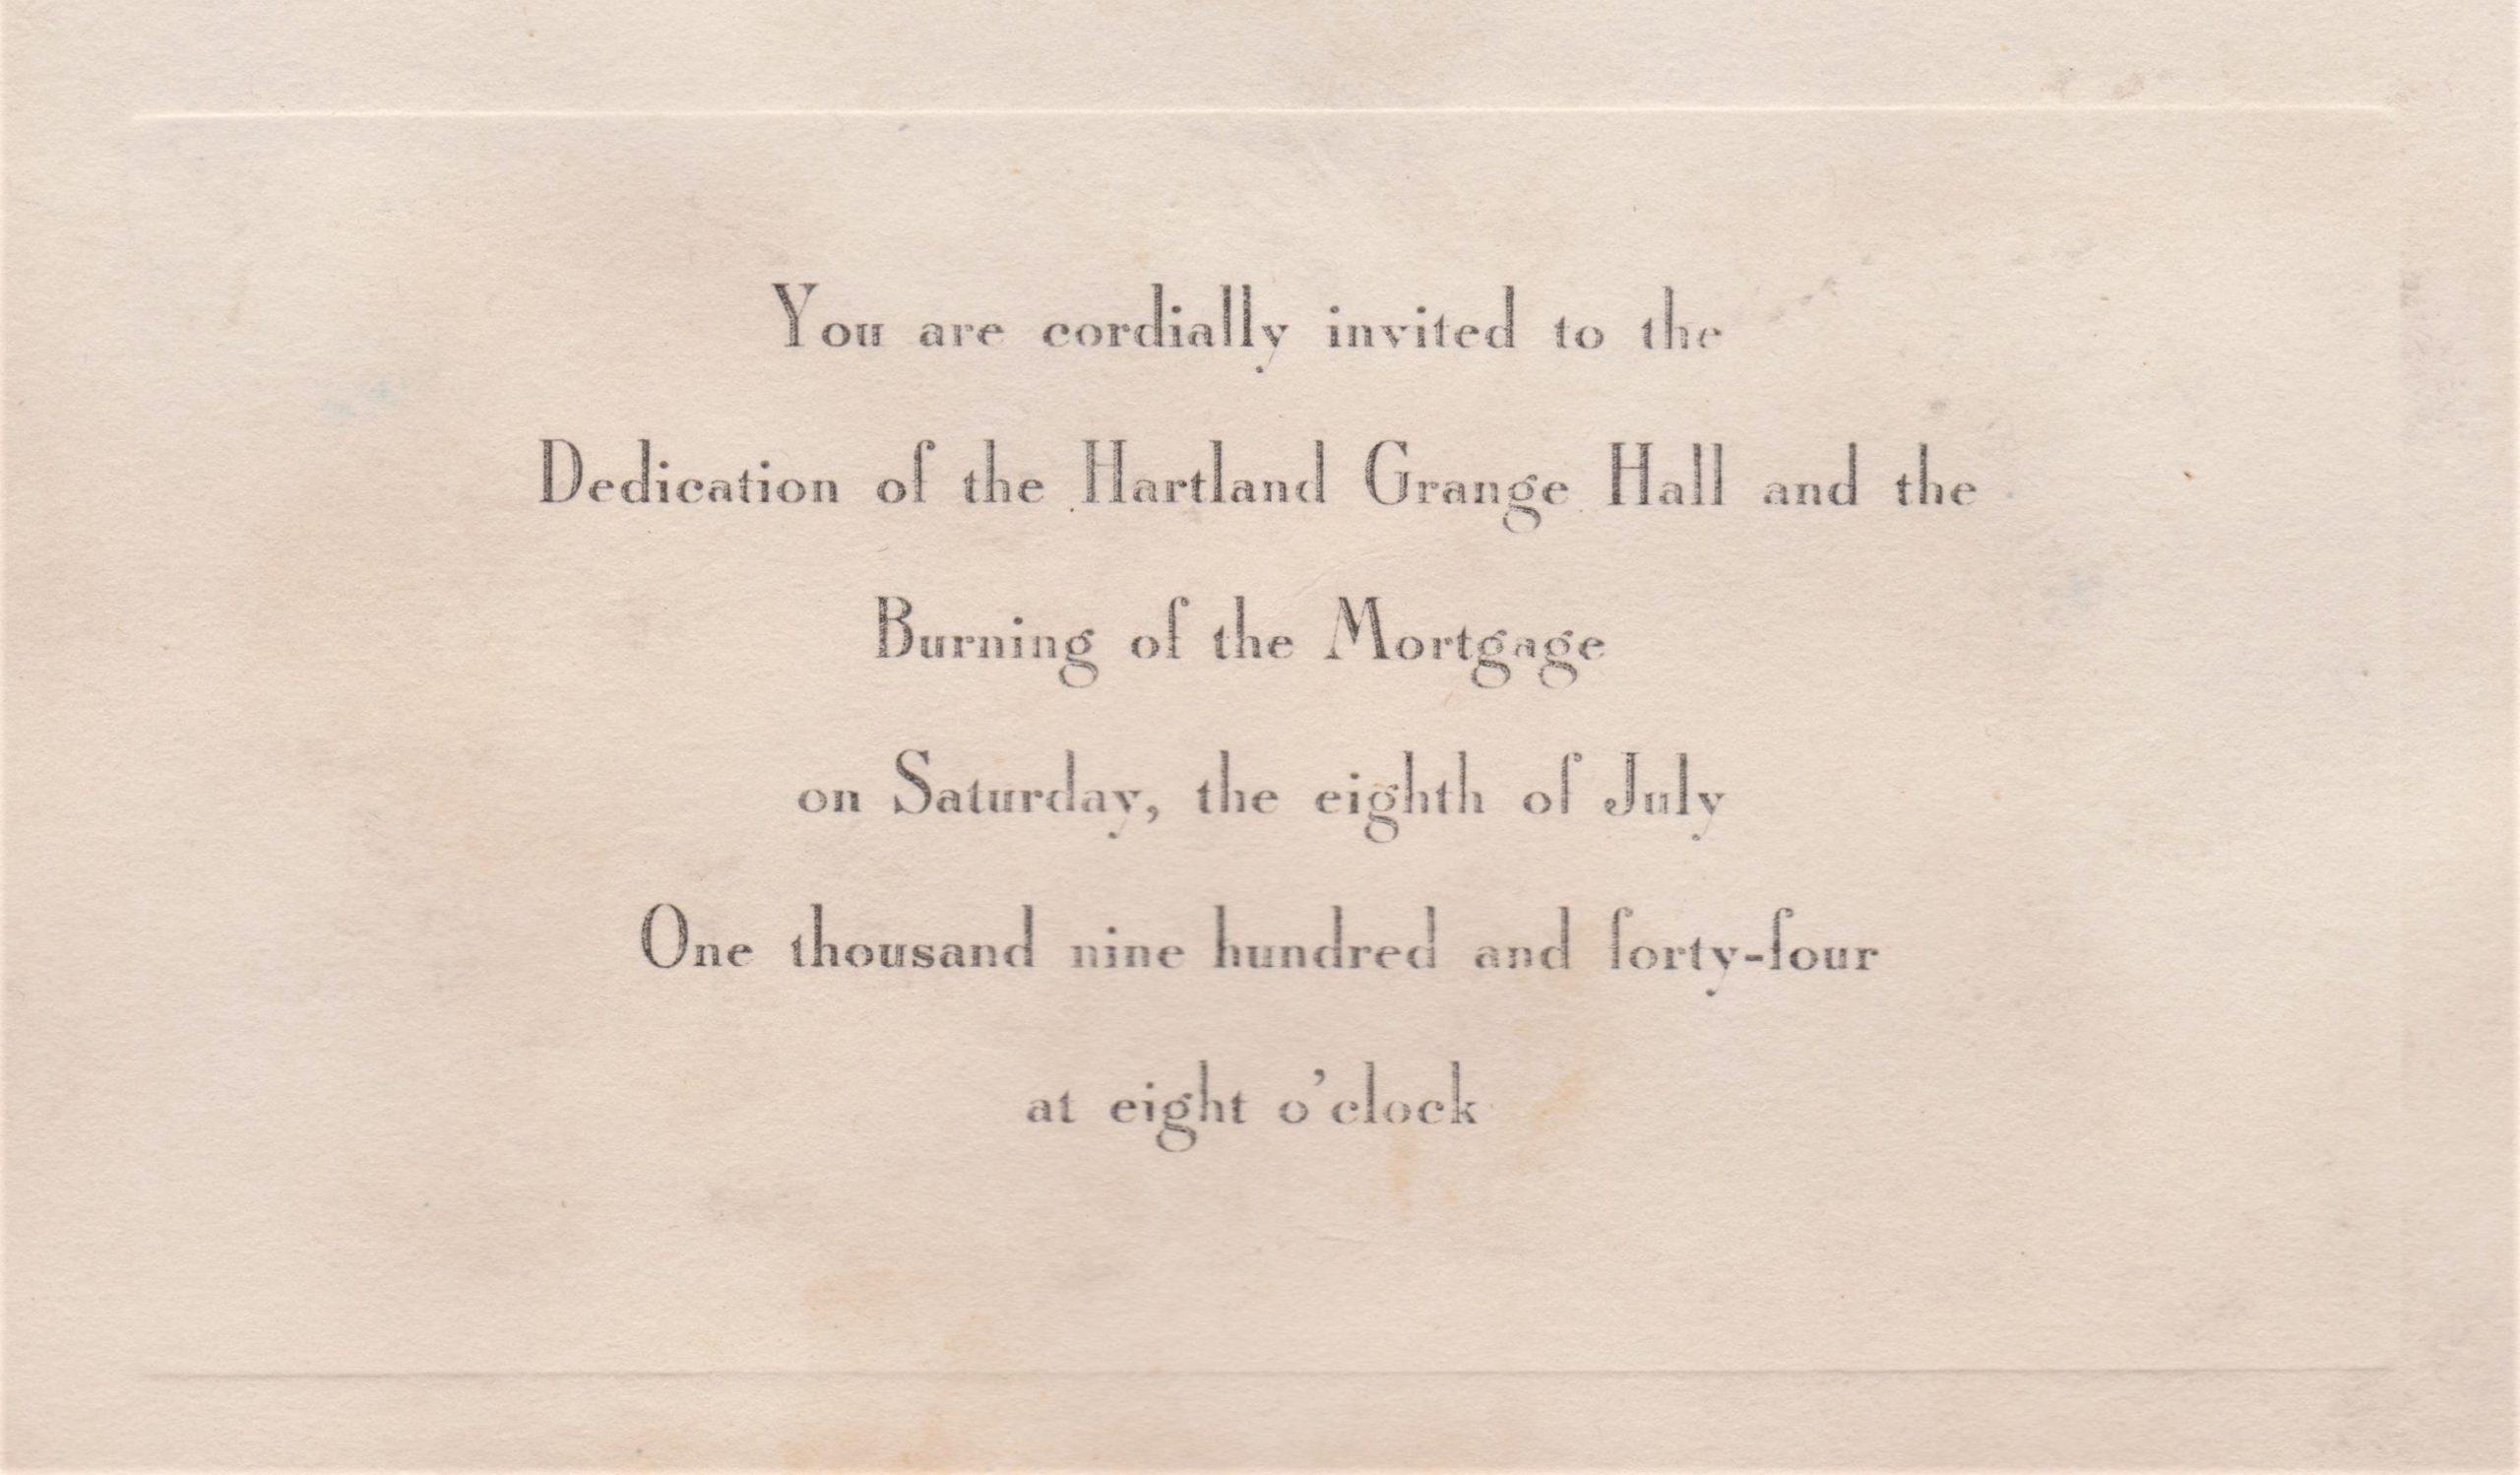 You are cordially invited to the
Dedication of the Hartland Grange Hall and the
Burning of the Mortgage
on Saturday, the eighth of July
One thousand nine hundred and forty-four
at eight o'clock